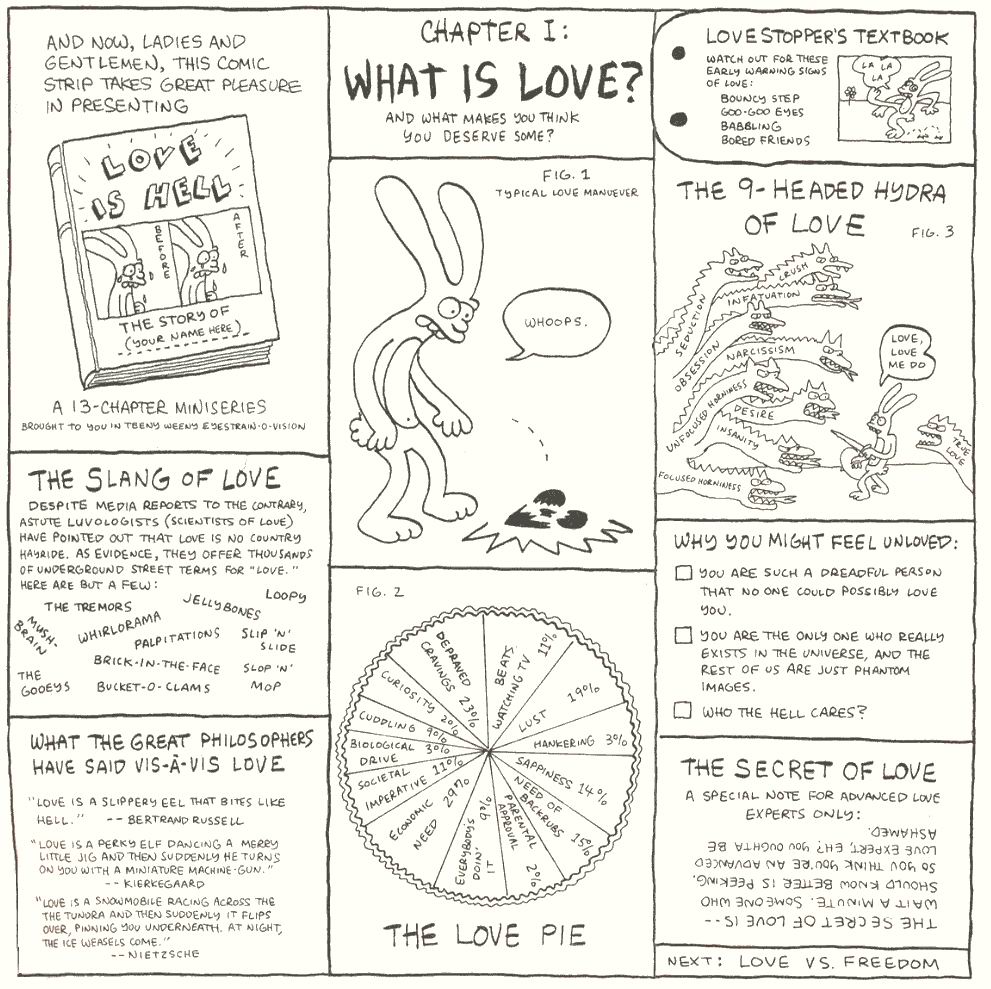 AND NOW, LADIES AND
GENTLEMEN, THIS COMIC
STRIP TAKES GREAT PLEASURE
IN PRESENTING
LOVE
IS HELL
BEFORE
AFTER
THE STORY OF
(YOUR NAME HERE)
A 13-CHAPTER MINISERIES
BROUGHT TO YOU IN TEENY WEENY EYESTRAIN-O-VISION
THE SLANG OF LOVE
DESPITE MEDIA REPORTS TO THE CONTRARY,
ASTUTE LUVOLOGISTS (SCIENTISTS OF LOVE)
HAVE POINTED OUT THAT LOVE IS NO COUNTRY
HAYRIDE. AS EVIDENCE, THEY OFFER THOUSANDS
OF UNDERGROUND STREET TERMS FOR "LOVE."
HERE ARE BUT A FEW:
THE TREMORS
JELLYBONES
LOOPY
MUSH-
BRAIN
WHIRLORAMA
PALPITATIONS
SLIP 'N'
SLIDE
BRICK-IN-THE-FACE
THE
GOOEYS
BUCKET-O-CLAMS
SLOP 'N'
MOP
WHAT THE GREAT PHILOSOPHERS
HAVE SAID VIS-À-VIS LOVE
"LOVE IS A SLIPPERY EEL THAT BITES LIKE
HELL." -- BERTRAND RUSSELL
"LOVE IS A PERKY ELF DANCING A MERRY
LITTLE JIG AND THEN SUDDENLY HE TURNS
ON YOU WITH A MINIATURE MACHINE-GUN."
-- KIERKEGAARD
"LOVE IS A SNOWMOBILE RACING ACROSS THE
THE TUNDRA AND THEN SUDDENLY IT FLIPS
OVER, PINNING YOU UNDERNEATH. AT NIGHT,
THE ICE WEASELS COME."
-- NIETZSCHE
CHAPTER I:
WHAT IS LOVE?
AND WHAT MAKES YOU THINK
YOU DESERVE SOME?
FIG. 1
TYPICAL LOVE MANUEVER
WHOOPS.
FIG. 2
BEATS
WATCHING TV 11%
LUST 19%
HANKERING 3%
SAPPINESS 14%
NEED OF
BACKRUBS 15%
PARENTAL
APPROVAL 2%
EVERYBODY'S
DOIN'
IT 9%
ECONOMIC
NEED 29%
SOCIETAL
IMPERATIVE 11%
BIOLOGICAL
DRIVE 3%
CUDDLING 9%
CURIOSITY 2%
DEPRAVED
CRAVINGS 23%
THE LOVE PIE
LOVE STOPPER'S TEXTBOOK
WATCH OUT FOR THESE
EARLY WARNING SIGNS
OF LOVE:
BOUNCY STEP
GOO-GOO EYES
BABBLING
BORED FRIENDS
LA LA
LA
THE 9-HEADED HYDRA
OF LOVE
FIG. 3
SEDUCTION
CRUSH
INFATUATION
OBSESSION
NARCISSISM
UNFOCUSED HORNINESS
DESIRE
INSANITY
FOCUSED HORNINESS
LOVE,
LOVE
ME DO
TRUE
LOVE
WHY YOU MIGHT FEEL UNLOVED:
YOU ARE SUCH A DREADFUL PERSON
THAT NO ONE COULD POSSIBLY LOVE
YOU.
YOU ARE THE ONLY ONE WHO REALLY
EXISTS IN THE UNIVERSE, AND THE
REST OF US ARE JUST PHANTOM
IMAGES.
WHO THE HELL CARES?
THE SECRET OF LOVE
A SPECIAL NOTE FOR ADVANCED LOVE
EXPERTS ONLY:
THE SECRET OF LOVE IS --
WAIT A MINUTE. SOMEONE WHO
SHOULD KNOW BETTER IS PEEKING.
SO YOU THINK YOU'RE AN ADVANCED
LOVE EXPERT, EH? YOU OUGHTA BE
ASHAMED.
NEXT: LOVE VS. FREEDOM